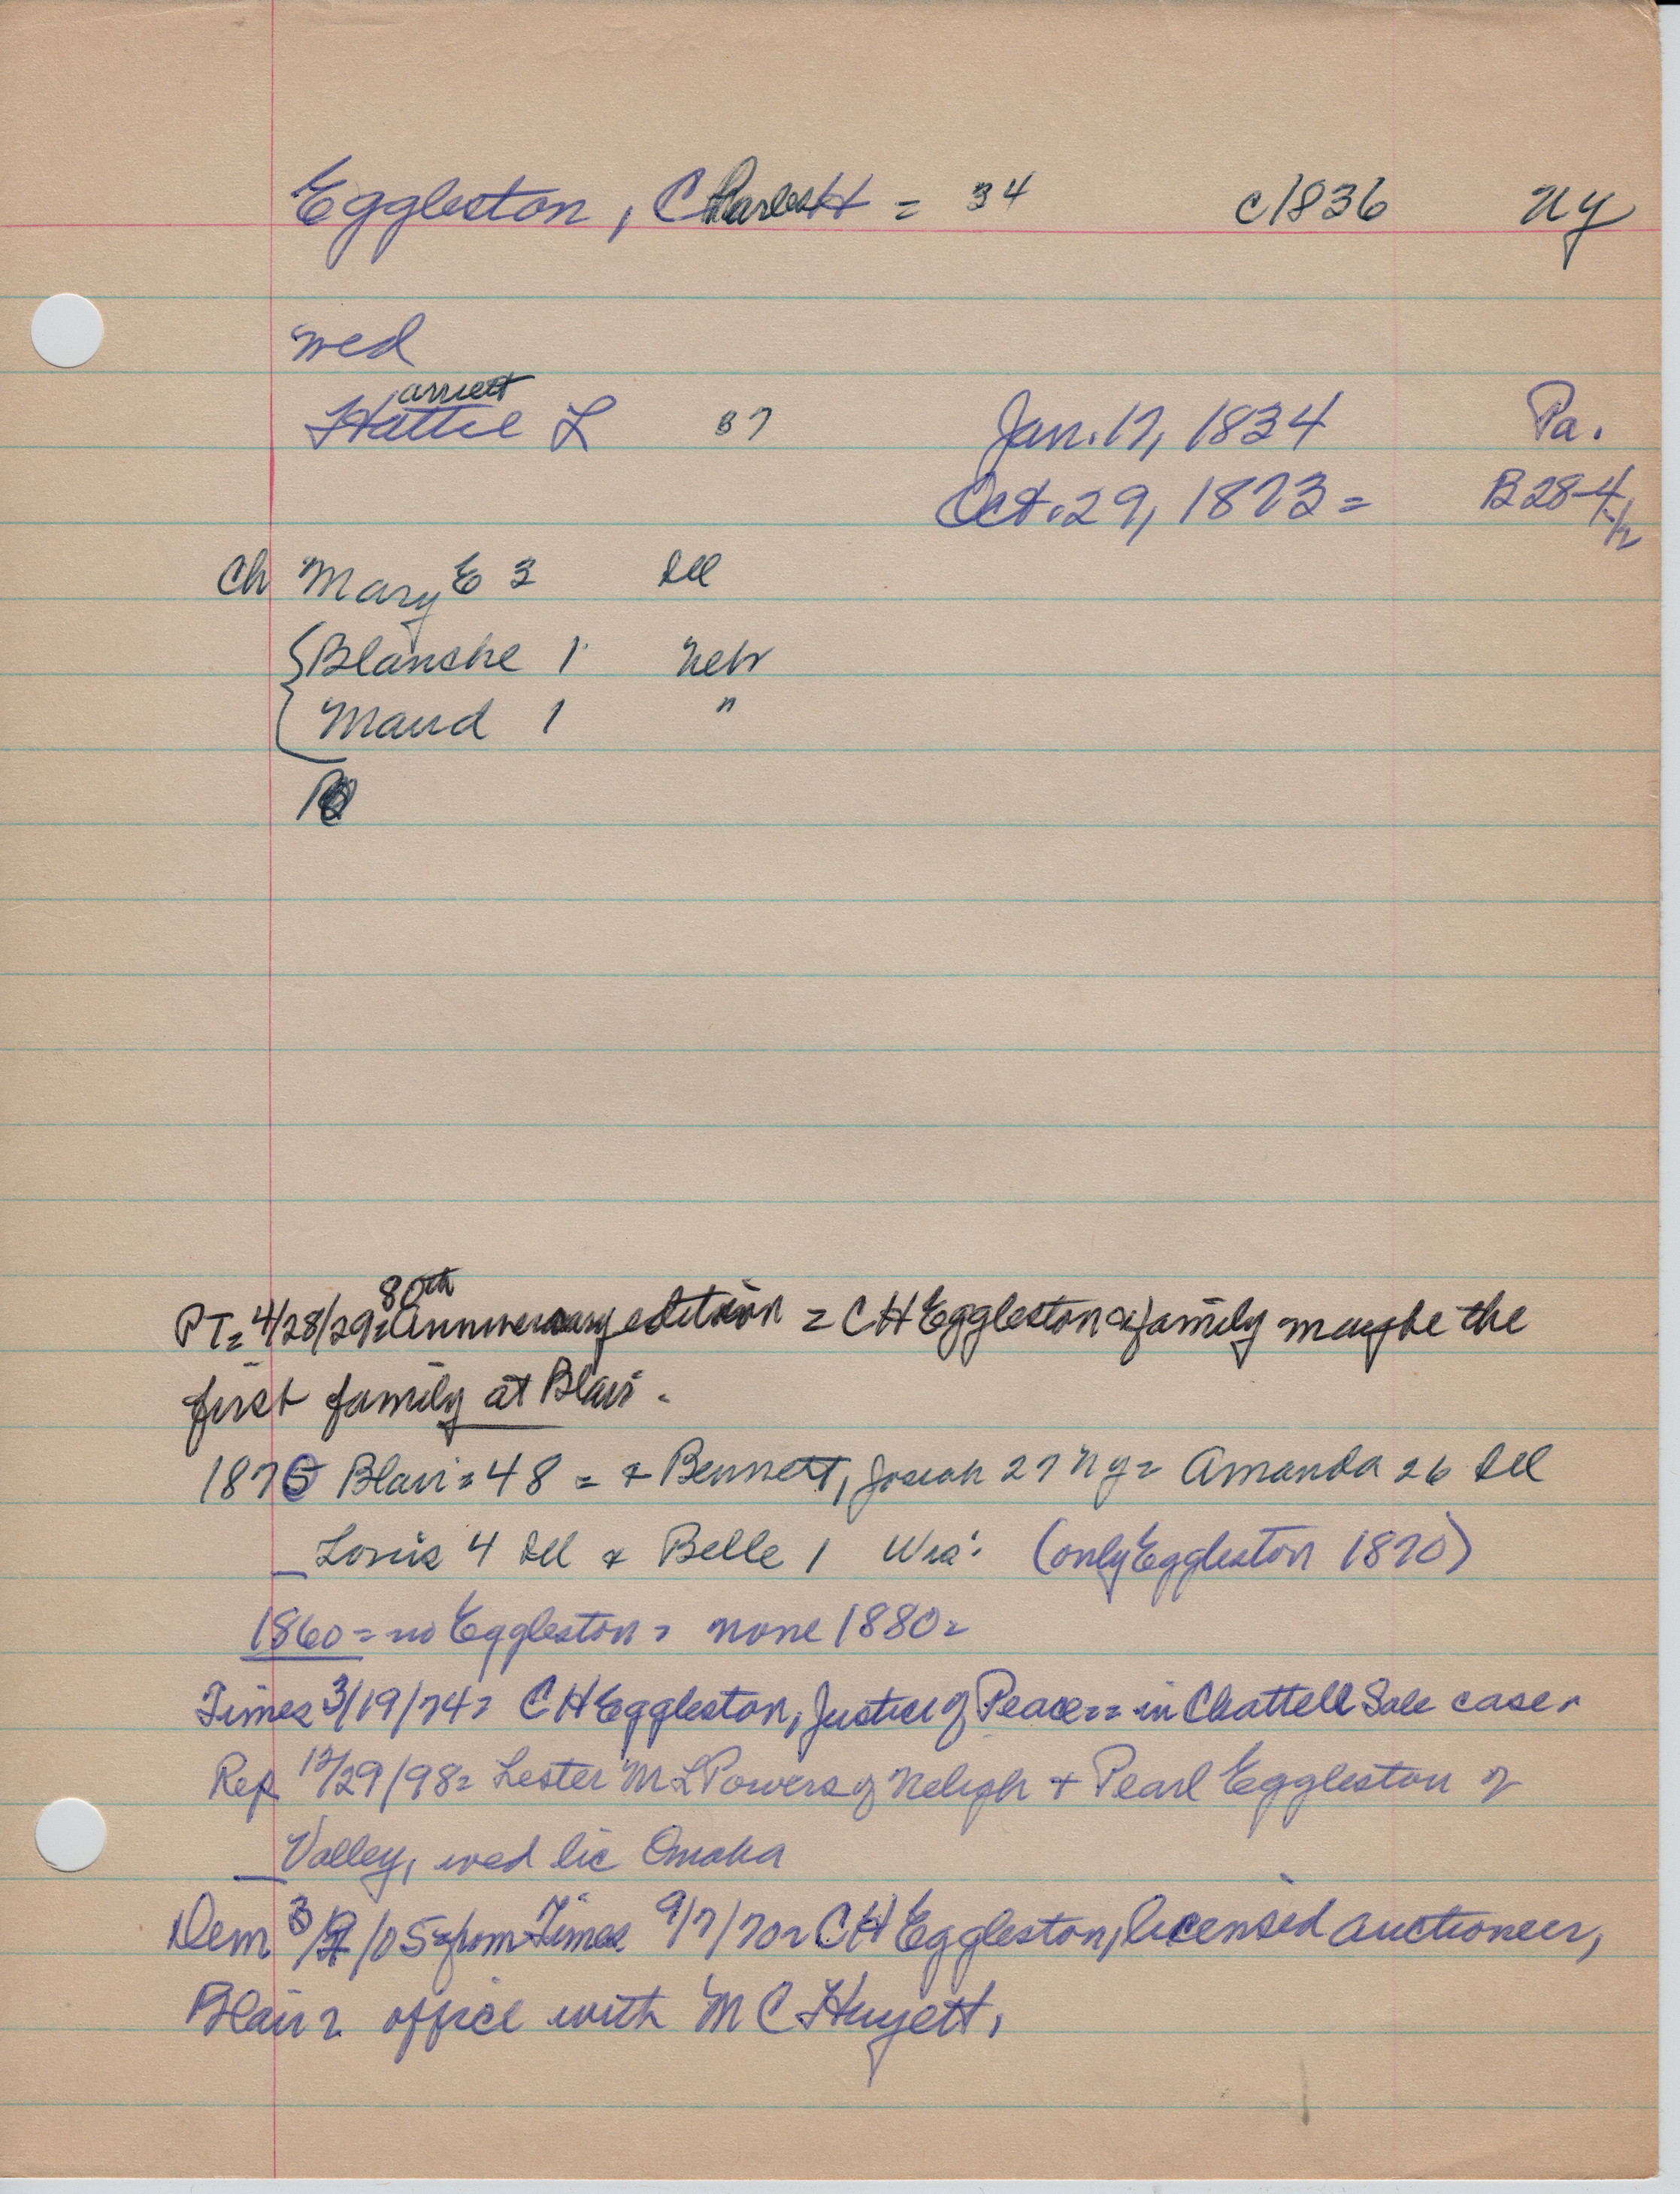 Eggleston, Charles H = 34 c1836 NY
wed
arriett
Hattie L 37 Jan. 17, 1834 Pa.
Oct. 29, 1873 = B28-4
Ch Mary E 3 Ill
Blanche 1 Neb
Maud 1 "
80th
PT= 4/28/29= Anniversary edition = C H Eggleston & family maybe the
first family at Blair.
1870 Blair = 48 = & Bennett, Josiah 27 NY = Amanda 26 Ill
Louis 4 Ill & Belle 1 Wis. (only Eggleston 1870)
1860 = no Eggleston = none 1880=
Times 3/19/74= C H Eggleston, Justice of Peace == in Chattell Sale case.
Rep 12/29/98= Lester M L Powers of Neligh + Pearl Eggleston of
Valley, wed lic Omaha
Dem /05= from Times 9/7/70= C H Eggleston, licensed auctioneer,
Blair = office with M C Huyett,